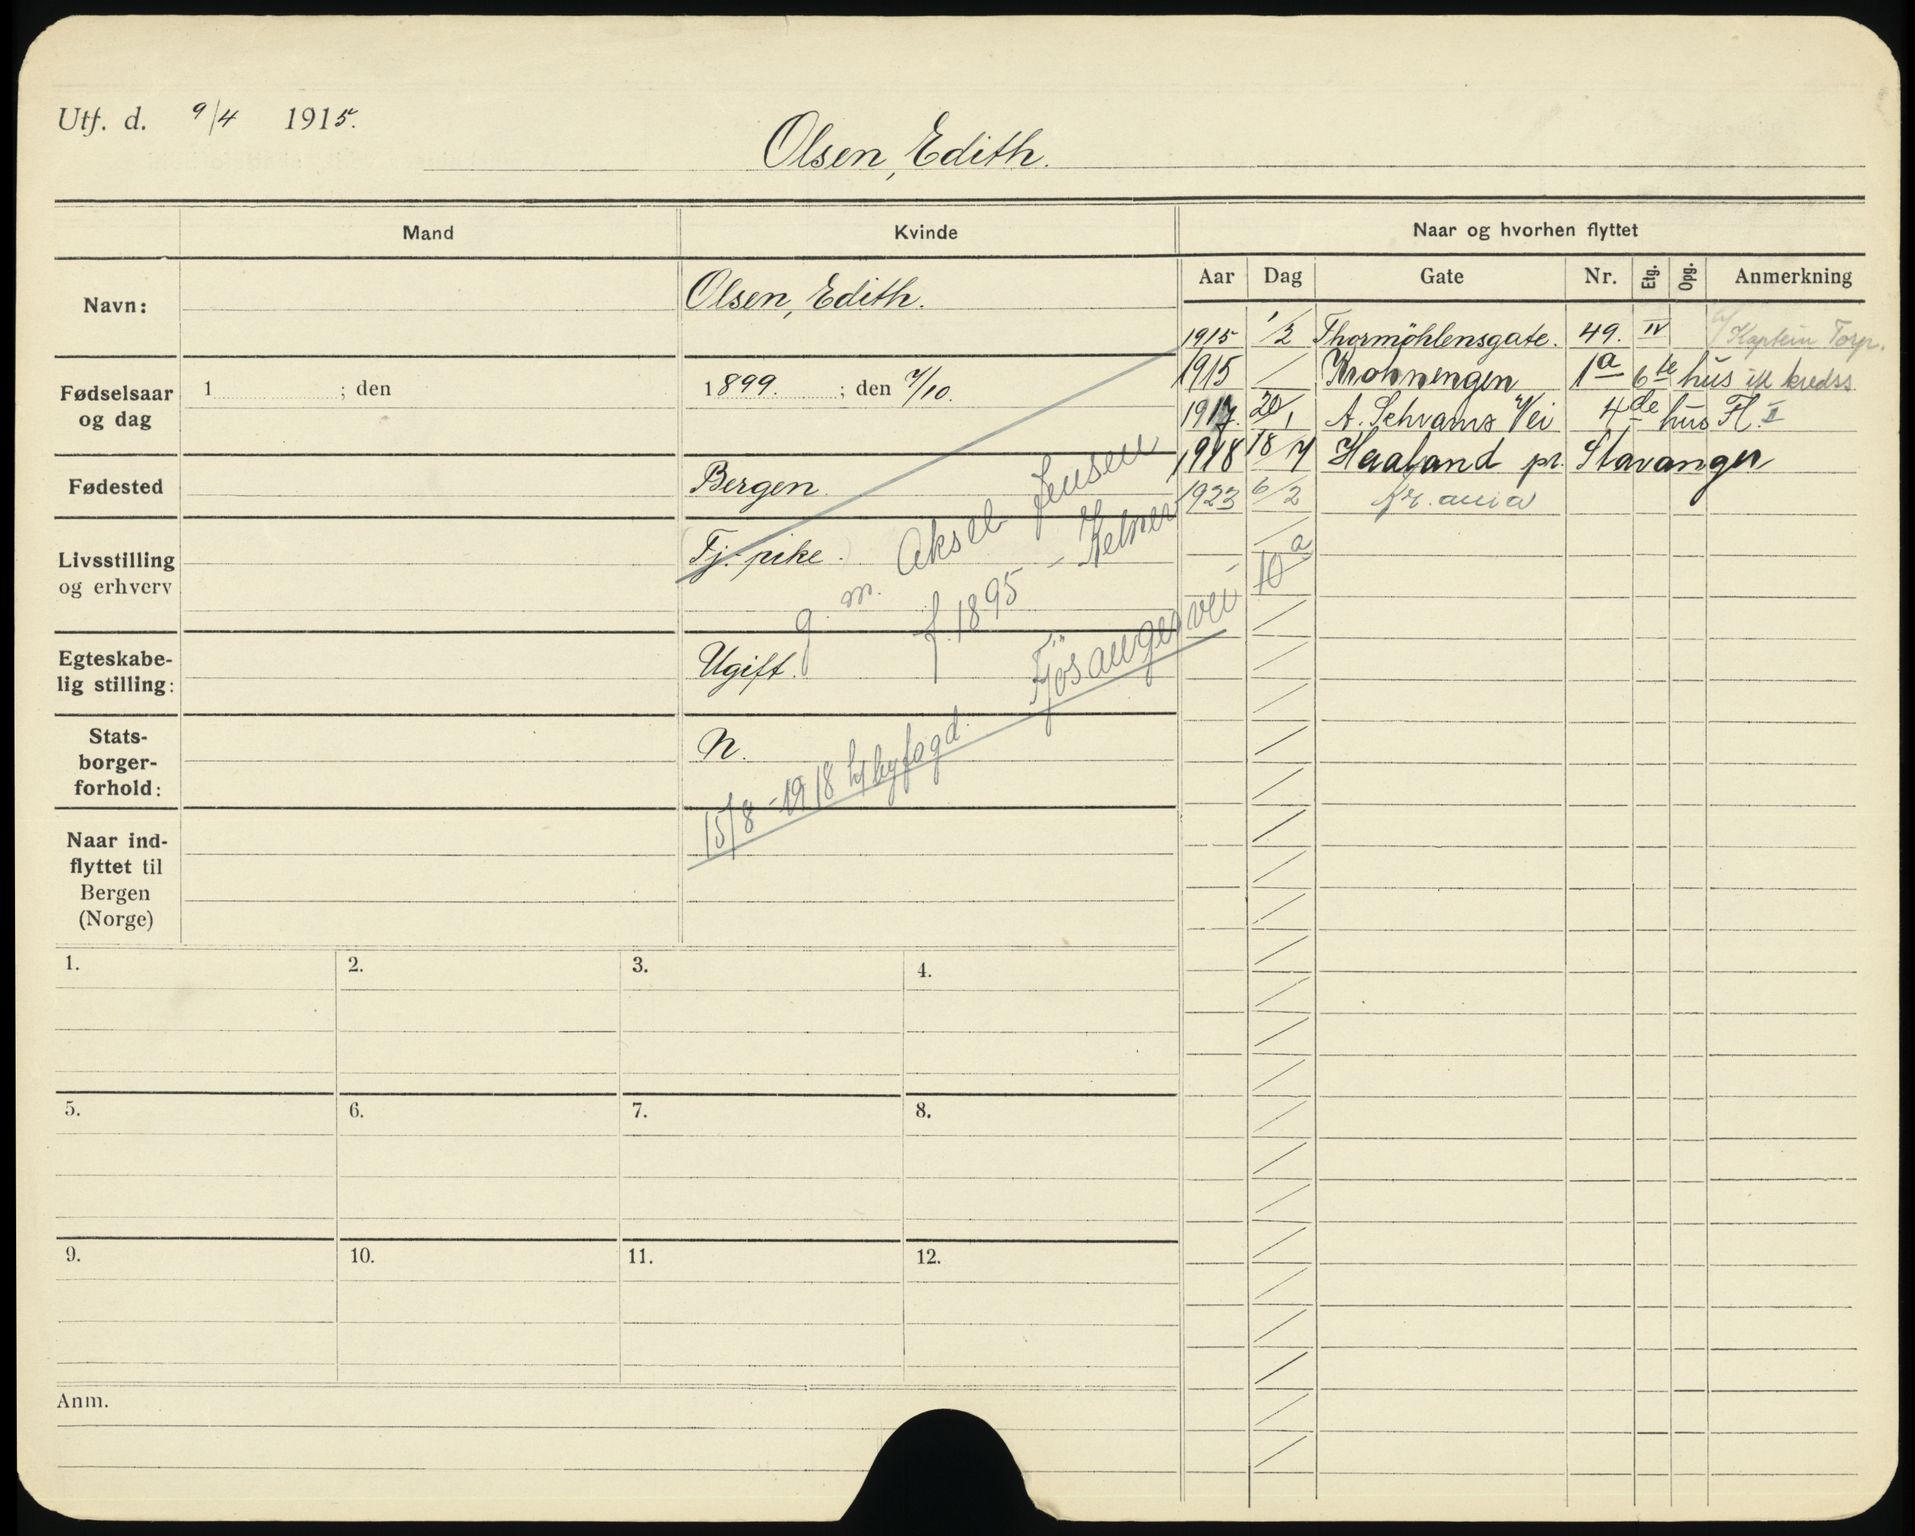 Utf. d. 9/4 1915.
Olsen, Edith.
Mand
Kvinde
Naar og hvorhen flyttet
Aar Dag Gate Nr. Etg. Opg. Anmerkning
Navn:
Olsen, Edith.
1915 1/2 Thormöhlensgate. 49. IV Kaptein Torp.
1915 / Krohnengen 1a 6te hus kredss
1917. 20/1 A. Schrams Vei 4de hus Fl. II
1918 18/7 Haaland pr. Stavanger
1923 6/2 Kr.ania
Fødselsaar
og dag
1 ; den
1899. ; den 7/10.
Fødested
Bergen.
Livsstilling
og erhverv
Tj. pike.
g. m. Aksel Jensen
f. 1895 - Kelner
Fjösangervei - 10a
Egteskabe-
lig stilling:
Ugift.
Stats-
borger-
forhold:
N.
15/8 - 1918 byfogd.
Naar ind-
flyttet til
Bergen
(Norge)
1. 2. 3. 4.
5. 6. 7. 8.
9. 10. 11. 12.
Anm.